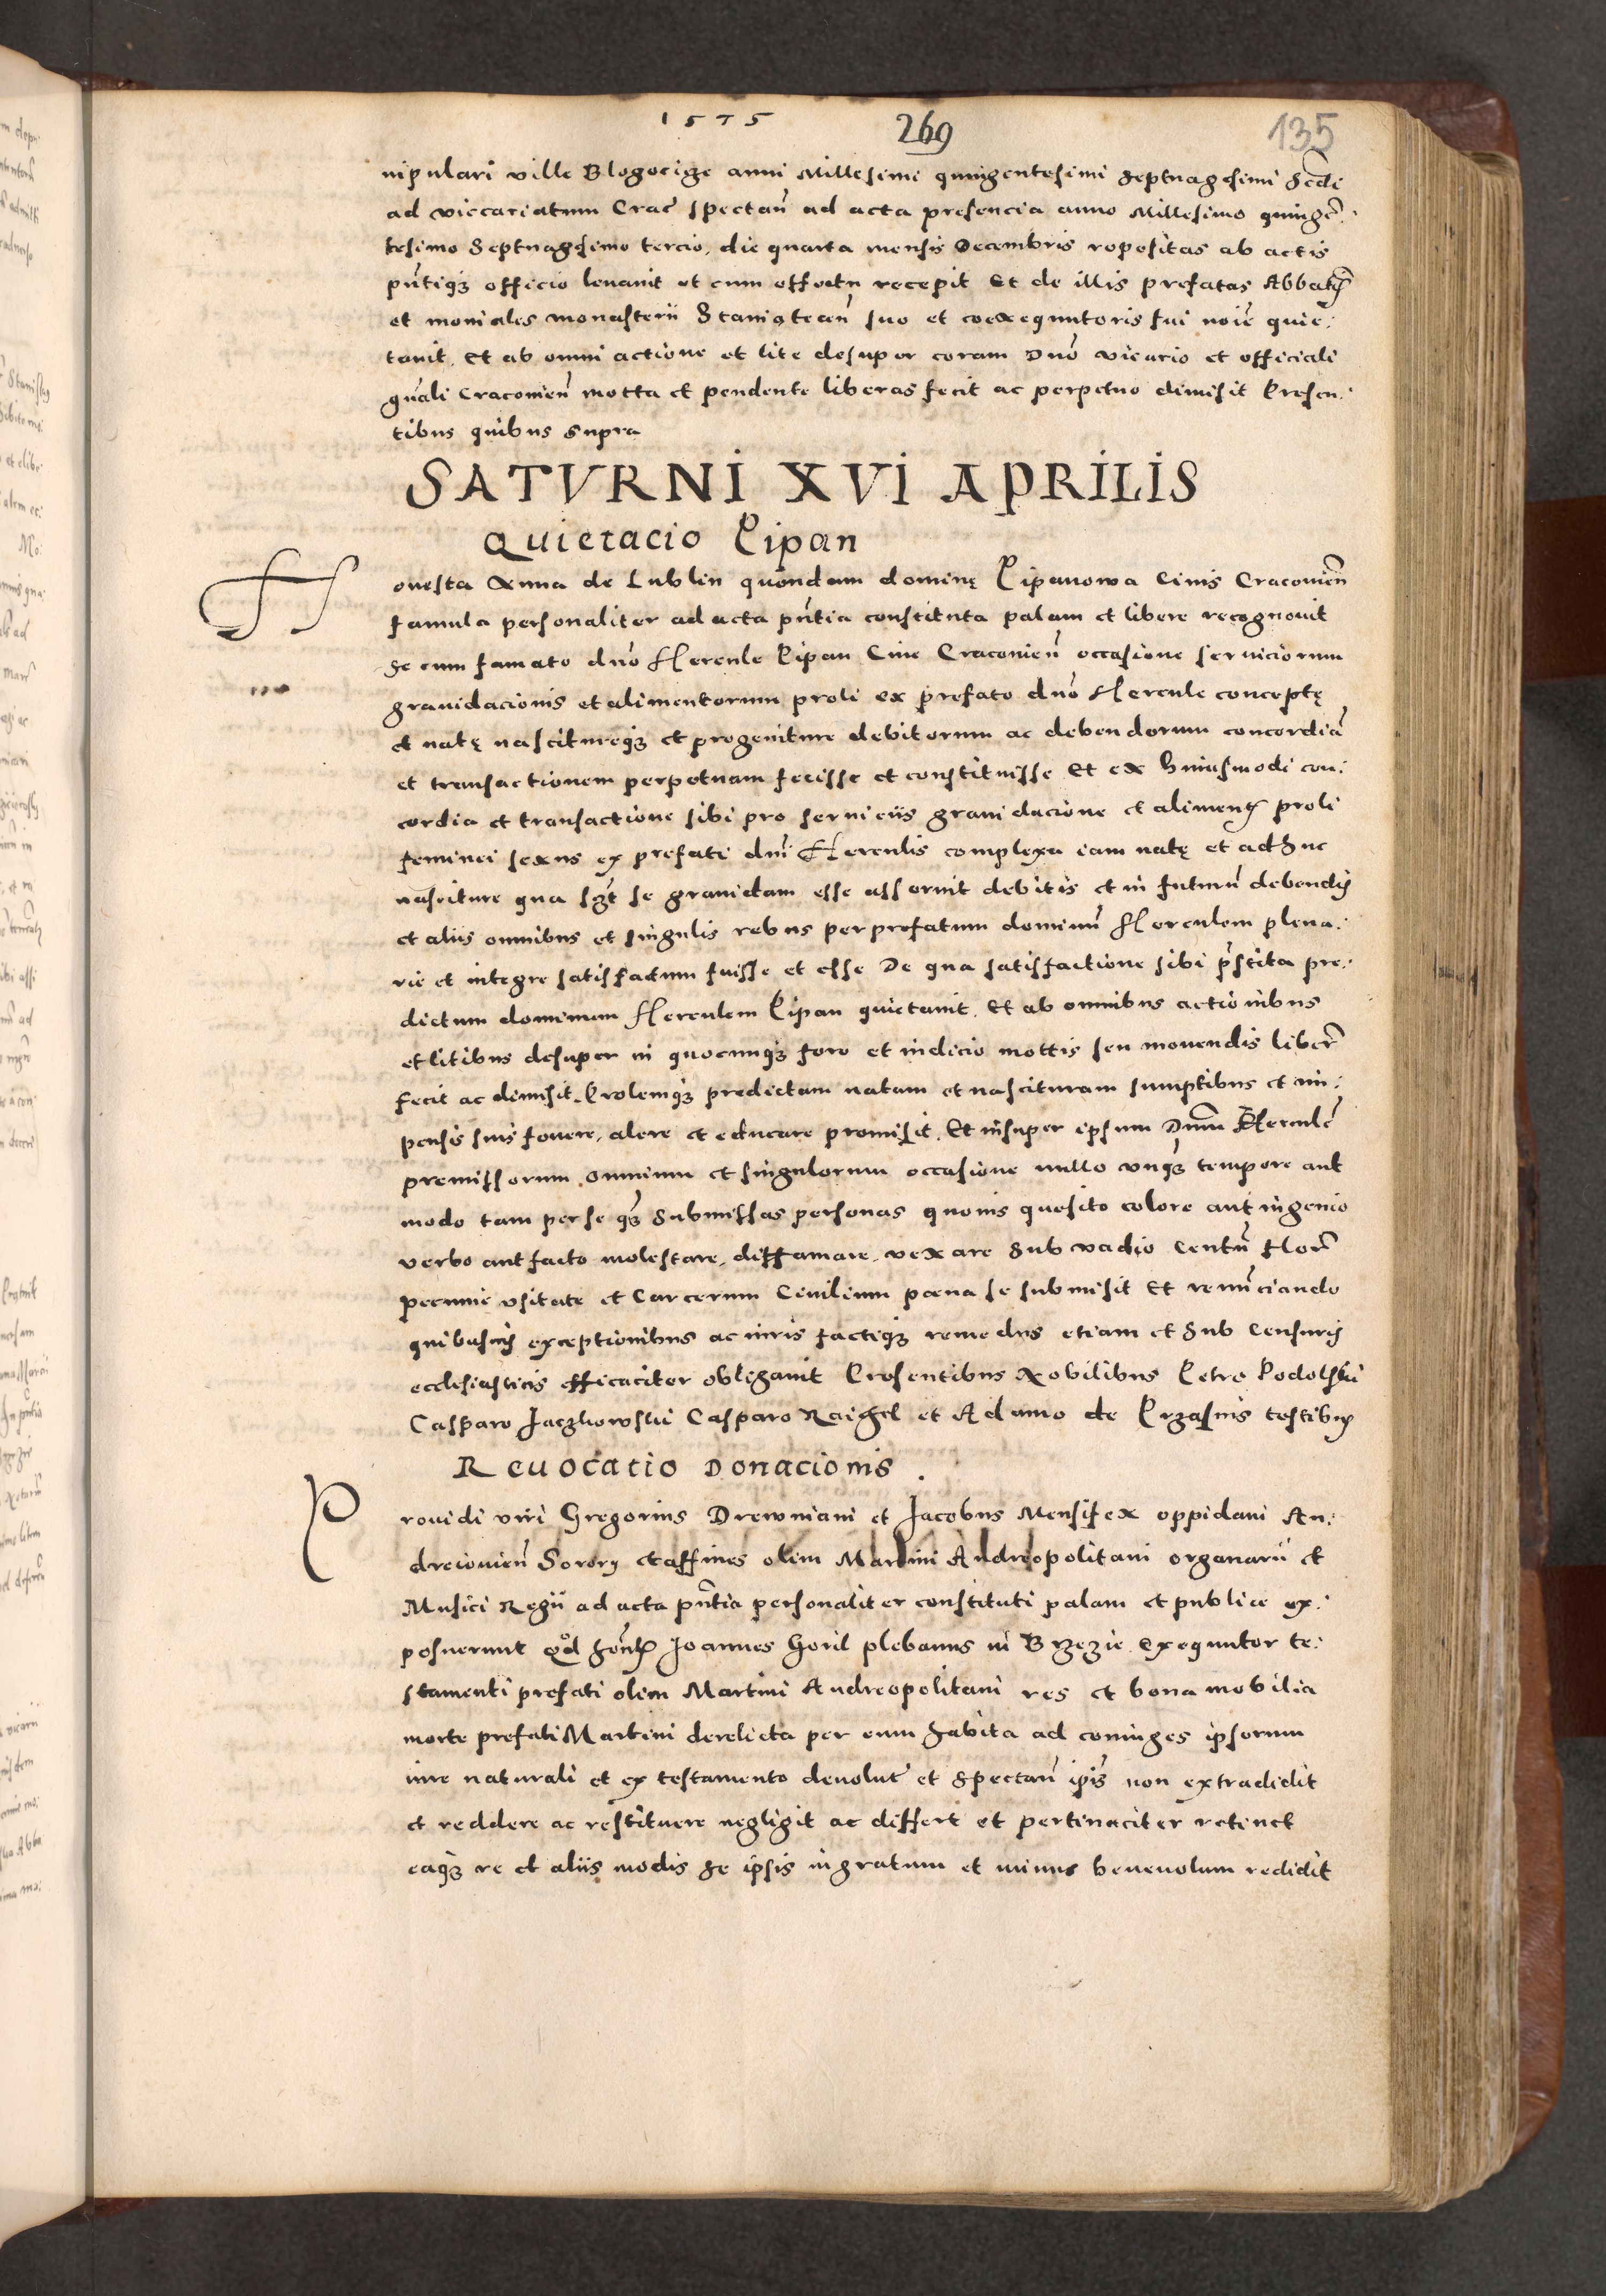 1575 269 135
nipulari ville Blogocize anni Millesimi quingentesimi septuagesimi Scdi
ad viccariatum Crac̃ spectan̄ ad acta presencia anno Millesimo quingẽ:
tesimo Septuagesimo tercio, die quarta mensis Decembris repositas ab actis
pñtiqȝ officio levavit et cum effectu recepit Et de illis prefatas Abbatē
et moniales monasterii Staniątecen̄ suo et coexequutoris sui noīe quie:
tavit. Et ab omni actione et lite desuper coram Dnō vicario et officiali
gn̄ali Cracovien̄ motta et pendente liberas fecit ac perpetuo dimisit Presen:
tibus quibus supra
SATVRNI XVI APRILIS
Quietacio Pipan
Honesta Anna de Lublin quondam dominę Pipanowa Civis Cracovien̄
famula personaliter ad acta pñtia constituta palam et libere recognovit
se cum famato dnō Hercule Pipan Cive Cracovien̄ occasione serviciorum
gravidacionis et alimentorum proli ex prefato dnō Hercule conceptę
et natę nasciturеqȝ et progeniture debitorum ac debendorum concordiā
et transactionem perpetuam fecisse et constituisse Et ex huiusmodi con:
cordia et transactione sibi pro serviciis gravidacione et alimentẜ proli
feminei sexus ex prefati dnī Herculis complexu iam natę et adhuc
nasciture qua szt se gravidam esse asseruit debitis et in futurū debendis
et aliis omnibus et singulis rebus per prefatum dominū Herculem plena:
rie et integre satisfactum fuisse et esse De qua satisfactione sibi p̄stita pre:
dictum dominum Herculem Pipan quietavit. Et ab omnibus actionibus
et litibus desuper in quocunqȝ foro et iudicio mottis seu movendis liber̄
fecit ac dimisit. Prolemqȝ predictam natam et nascituram sumptibus et im:
pensis suis fovere, alere et educare promisit. Et insuper ipsum Dnm̄ Herculē
premissorum omnium et singulorum occasione nullo unqȝ tempore aut
modo tam per se qȝ submissas personas quovis quesito colore aut ingenio
verbo aut facto molestare, diffamare, vexare sub vadio Centū flor̄
pecunie usitate et Carcerum Civilium pœna se submisit Et renūciando
quibusvis exceptionibus ac iuris factiqȝ remediis etiam et sub Censuris
ecclesiasticis efficaciter obligavit Presentibus Nobilibus Petro Podolski
Casparo Jaczkowski Casparo Raigel et Adamo de Przasnis testibus
Revocatio Donacionis.
Providi viri Gregorius Drewniani et Jacobus Mensifex oppidani An:
dreiovien̄ Sorory et affines olim Martini Andreopolitani organarū et
Musici Regii ad acta pñtia personaliter constituti palam et publice ex:
posuerunt qd̊ honẜ Joannes Goril plebanus in Brzezie Exequutor te:
stamenti prefati olim Martini Andreopolitani res et bona mobilia
morte prefati Martini derelicta per eum habita ad coniuges ipsorum
iure naturali et ex testamento devolut̄ et spectan̄ ip̄is non extradidit
et reddere ac restituere negligit ac differt et pertinaciter retinet
eaqȝ re et aliis modis se ipsis ingratum et minus benevolum redidit